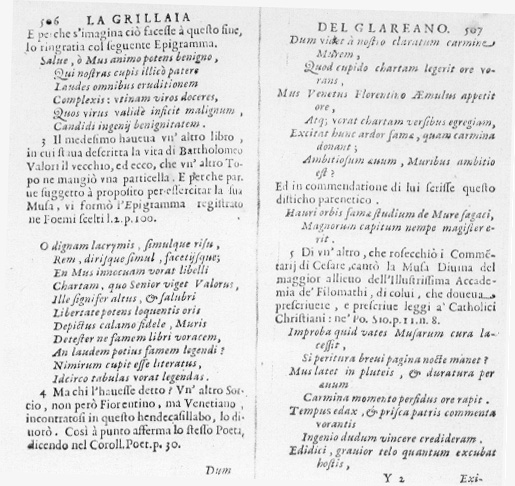 506 LA GRILLAIA
E perche s'imagina ciò facesse à questo fine,
lo ringratia col seguente Epigramma.
Salue, ò Mus animo potens benigno,
Qui nostras cupis illicò patere
Laudes omnibus eruditionem
Complexis: vtinam viros doceres,
Quos virus validè inficit malignum,
Candidi ingenij benignitatem.
3 Il medesimo haueua vn' altro libro,
in cui stàua descritta la vita di Bartholomeo
Valori il vecchio, ed ecco, che vn' altro To-
po ne mangiò vna particella. E perche par-
ue suggetto à proposito per essercitar la sua
Musa, vi formò l'Epigramma registrato
ne Poemi scelti l.2. p.100.
O dignam lacrymis, simulque risu,
Rem, dirisque simul, facetijsque;
En Mus innocuam vorat libelli
Chartam, quo Senior viget Valorus,
Ille signifer altus, & salubri
Libertate potens loquentis oris
Depictus calamo fidele, Muris
Detester ne famem libri voracem,
An laudem potius famem legendi?
Nimirum cupit esse literatus,
Idcirco tabulas vorat legendas.
4 Ma chi l'hauesse detto? Vn' altro Sor-
cio, non però Fiorentino, ma Venetiano,
incontratosi in questo hendecasillabo, lo di-
uorò. Così à punto afferma lo stesso Poeta,
dicendo nel Coroll. Poet. p. 30.
Dum
DEL GLAREANO. 507
Dum videt à nostro claratum carmine
Murem,
Quod cupido chartam legerit ore vo-
rans,
Mus Venetus Florentino Æmulus appetit
ore,
Atq; vorat chartam versibus egregiam,
Excitat hunc ardor famæ, quam carmina
donant;
Ambitiosum æuum, Muribus ambitio
est?
Ed in commendatione di lui scrisse questo
disticho parenetico.
Hauri orbis famæ studium de Mure sagaci,
Magnorum capitum nempe magister e-
rit.
5 Di vn' altro, che rosecchiò i Commē-
tarij di Cesare, cantò la Musa Diuina del
maggior allieuo dell'Illustrissima Accade-
mia de' Filomathi, di colui, che doueua
prescriuere, e prescriue leggi a' Catholici
Christiani: ne' Po. S10. p.11. n. 8.
Improba quid vates Musarum cura la-
cessit,
Si peritura breui pagina nocte manet?
Mus latet in pluteis, & duratura per
æuum
Carmina momento perfidus ore rapit.
Tempus edax, & prisca patris commenta
vorantis
Ingenio dudum vincere credideram.
Edidici, grauior telo quantum excubat
hostis,
Y 2 Exi-